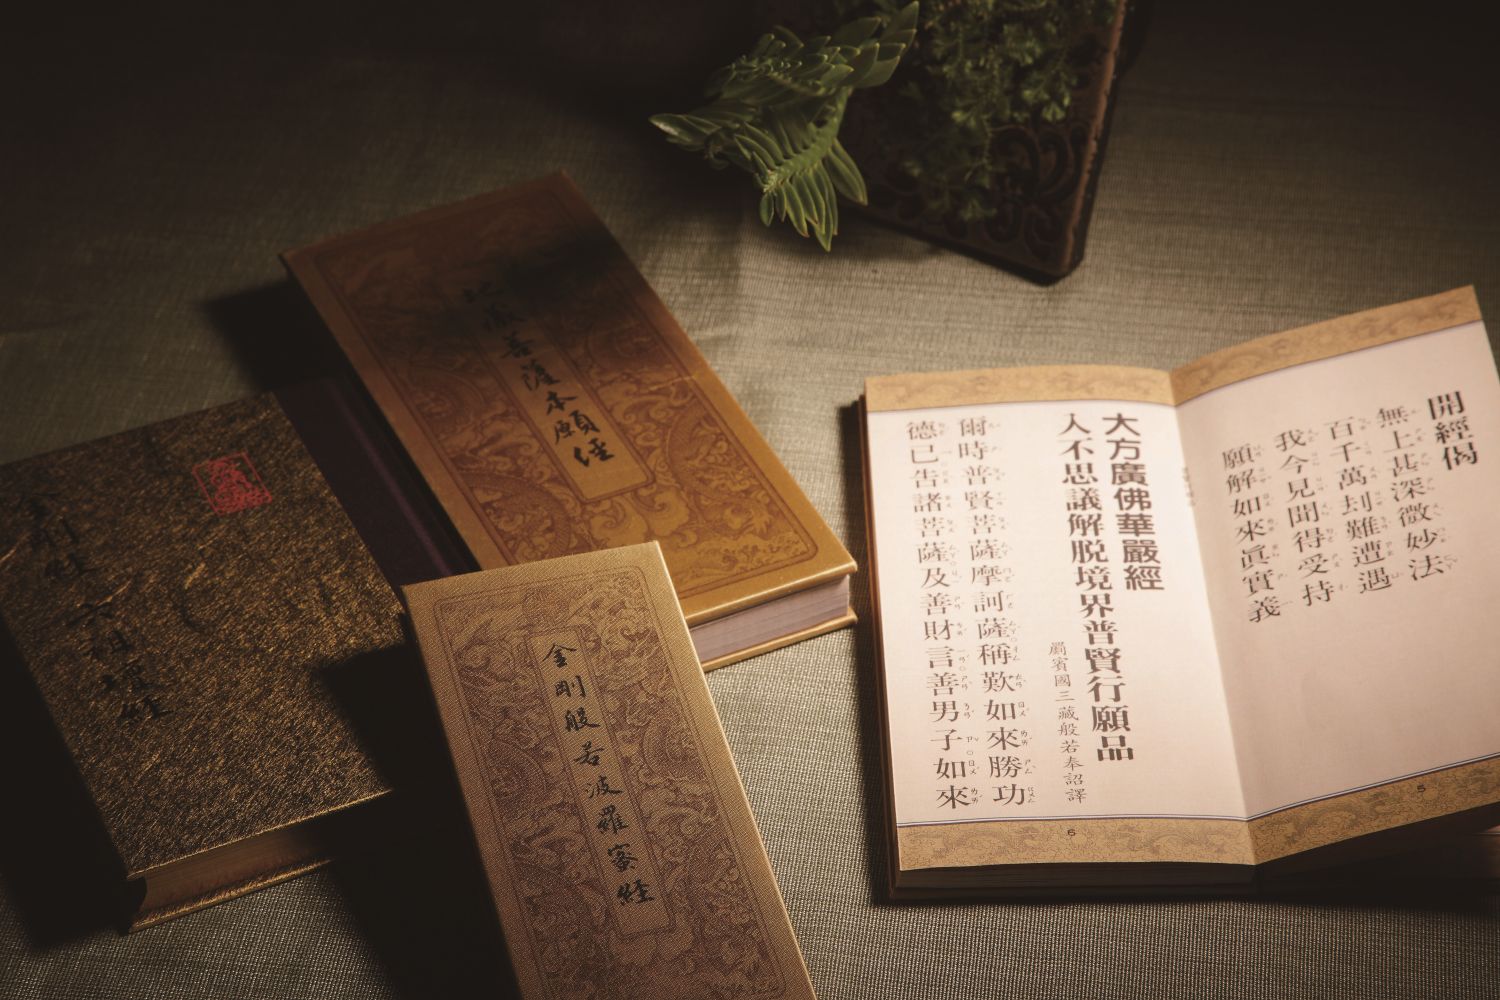 地藏菩薩本願經
金剛經 六祖壇經
金剛般若波羅蜜經
開經偈
無上甚深微妙法
百千萬刦難遭遇
我今見聞得受持
願解如來眞實義
5
大方廣佛華嚴經
入不思議解脫境界普賢行願品
罽賓國三藏般若奉詔譯
爾時普賢菩薩摩訶薩稱歎如來勝功
德已告諸菩薩及善財言善男子如來
6